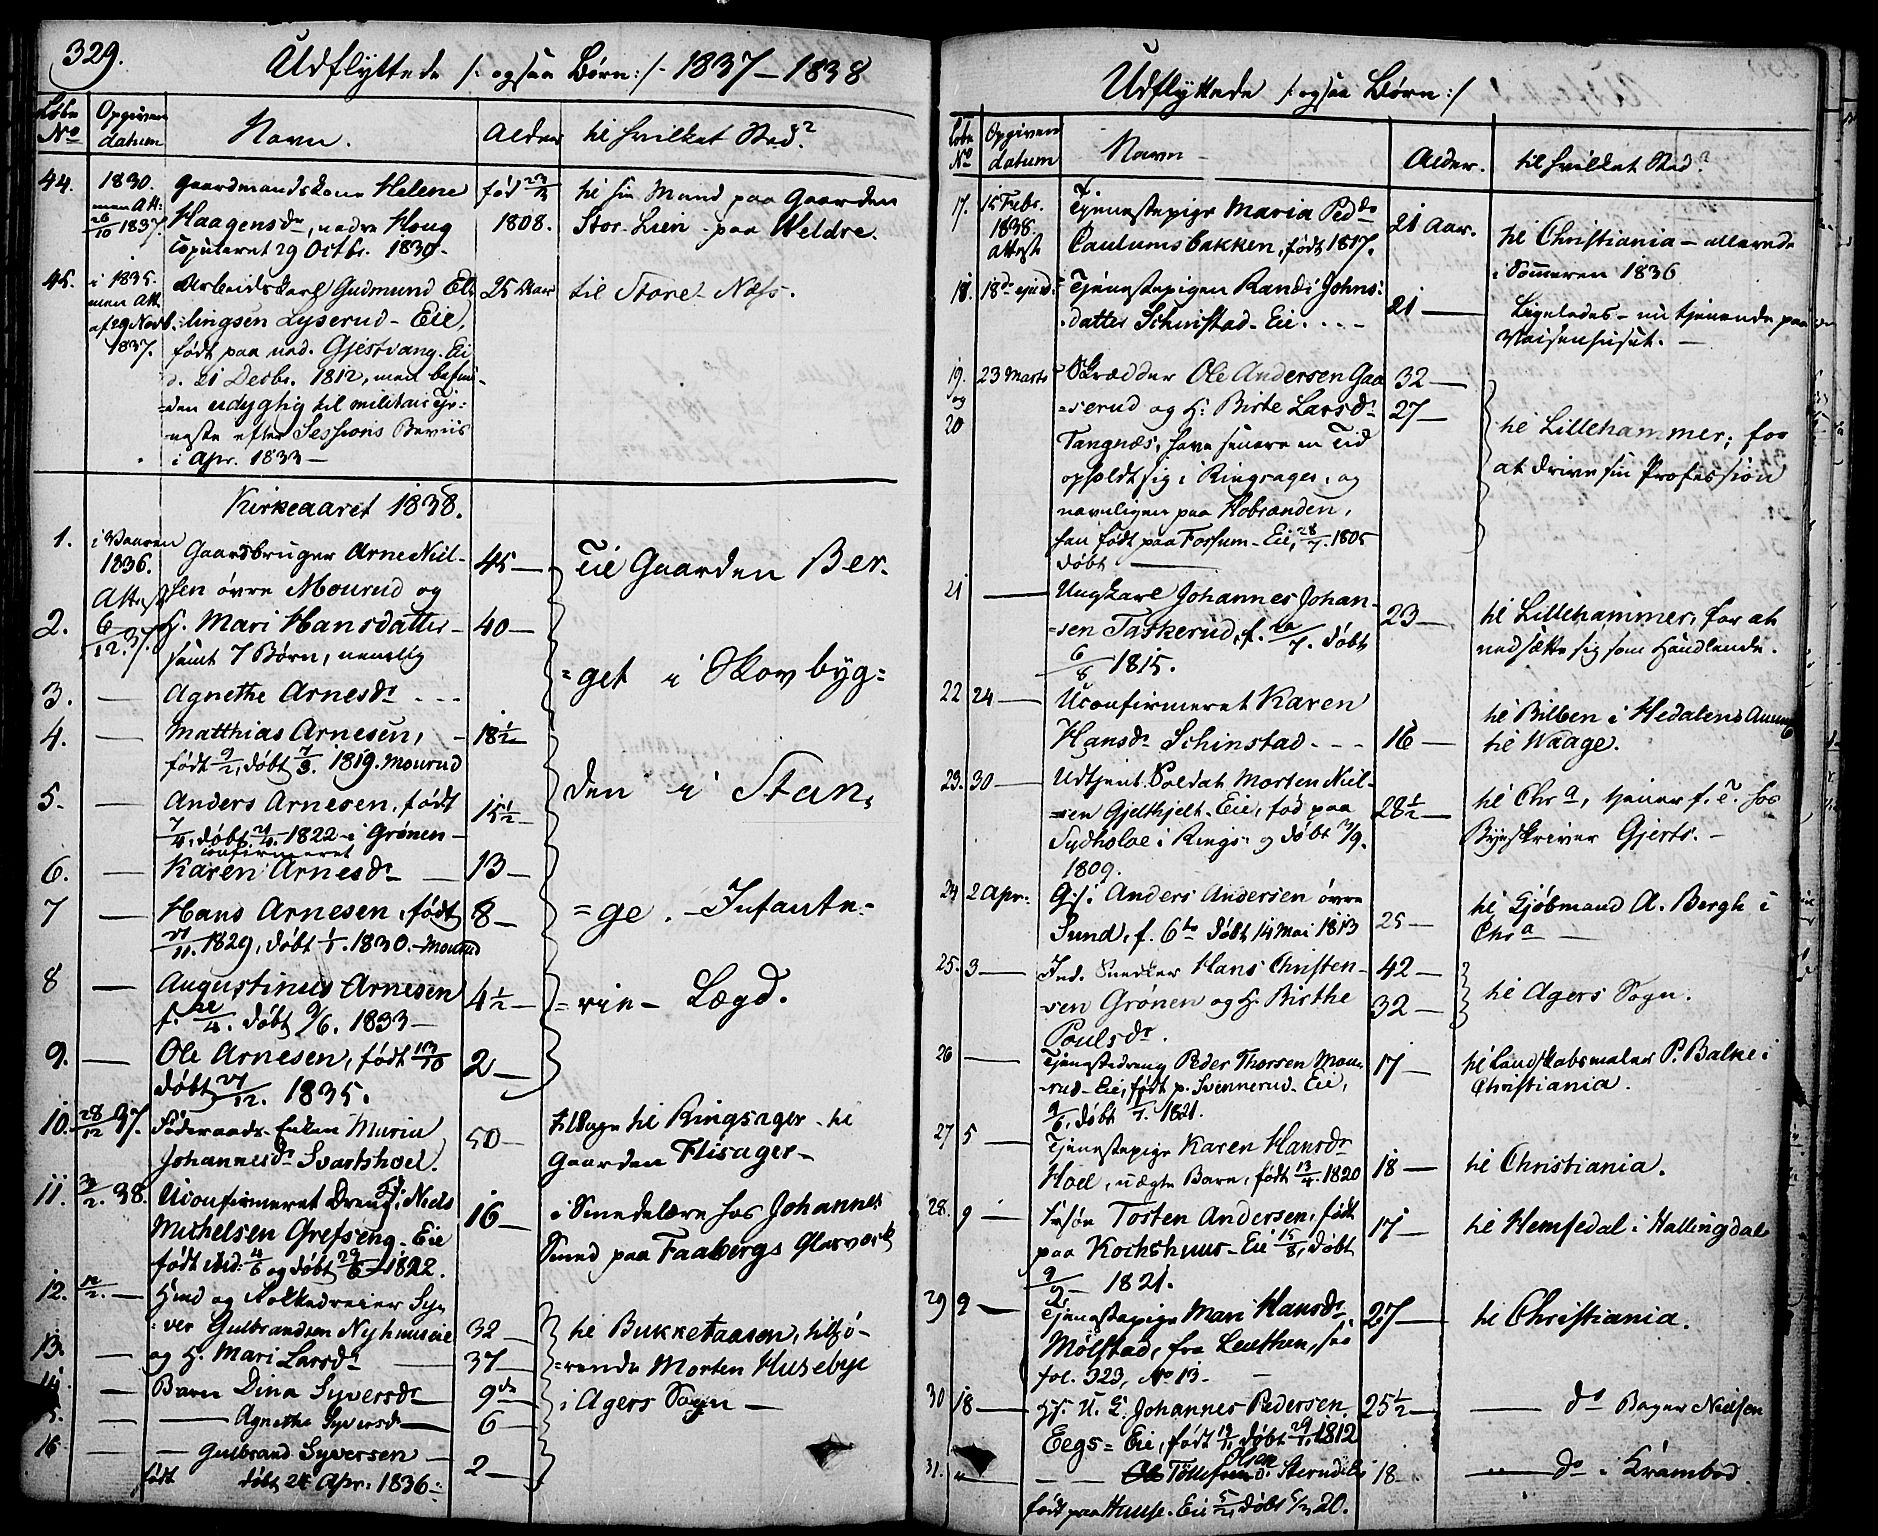 329.
Udflyttede /: ogsaa Børn :/ 1837–1838
Løbe No
Opgiven datum
Navn.
Alder
til hvilket Sted?
44.
1830. men Att: 26/10 1837.
Gaardmandskone Helene
Haagensdr, nedre Houg
copuleret 29 Octbr. 1830.
fød 23/4 1808.
til sin Mand paa Gaarden
Stor-Lien paa Veldre.
45.
i 1835. men Att. af 29 Novb. 1837.
Arbeidskarl Gudmund El-
lingsen Lyserud-Eie,
født paa ned. Gjestvang-Ei
d. 21 Decbr. 1812, men befun-
den udygtig til militair Tje-
neste efter Sessions Beviis
i Apr. 1833 –
25 Aar
til Store-Næss.
Kirkeaaret 1838.
1.
i Vaaren 1836. Attest 6/12 37.
Gaardbruger Arne Niel-
sen øvre Mourud og
45 –
Til Gaarden Ber-
2.
H. Mari Hansdatter –
samt 7 Børn, nemlig
40 –
=get i Skovbyg=
3. –
Agnethe Arnesdr - - -
4. –
Matthias Arnesen,
født 9/2, døbt 7/3. 1819. Mourud
18½
den i Stan,
5. –
Anders Arnesen, født
7/4, døbt 21/4. 1822 – i Grønen –
15½ –
6. –
confirmeret
Karen Arnesdr –
13 –
7 –
Hans Arnesen, født
11. 1829, døbt 1/1. 1830. – Mourud
8 –
=ge. – Infante-
8 –
Augustinus Arnesen
f. /4. døbt 9/6. 1833 –
4½ –
=rie – Lægd.
9. –
Ole Arnesen, født /10
døbt 27/12. 1835.
2 –
10.
28/12 37.
Føderaads-Enken Maria
Johannesdr Svartshoel.
50 –
tilbage til Ringsager – til
Gaarden Flisager –
11.
/2. 38.
Uconfirmeret Dreng Niels
Michelsen Grefseng-Eie
født ibid. 4/6 og døbt 29/6 1822.
16 –
i Smedelære hos Johannes
Smed paa Faabergs Glasværk
12.
12/2. –
Huusmd og Rokkedreier Sy-
ver Gulbrandsen Nyhuuseie
32 –
til Bukketaasen, tilhø-
13. –
og H. Mari Larsdr
37 –
=rende Morten Huseby
14 –
Barn Dina Syversdr
9 do
i Agers Sogn –
15. –
– Agnethe Syversdr –
6 –
16 –
– Gulbrand Syversen –
født døbt 24 Apr. 1836 –
2 –
Udflyttede /: ogsaa Børn :/
Løbe No
Opgiven datum
Navn –
Alder.
til hvilket Sted?
17.
15 Febr. 1838. attest
Tjenestepige Maria Pedsdr
Paulumsbakken, født 1817.
21 Aar.
til Christiania – allerede
i Sommeren 1836
18.
18de ejusd.
Tjenestepigen Randi Johns-
datter Schinstad-Eie. - - -
21 –
Ligeledes – nu tjenende paa
Vaisenhuset. –
19. og 20
23 Marts
Skrædder Ole Andersen Gaa
=serud og H. Birte Larsdr
Tangnæs, have senere en Tid
opholdt sig i Ringsager, og
navnligen paa Kobranden,
han født paa Fossum-Eie, 28/7. 1805
døbt –
32 –
27 –
til Lillehammer; for
at drive sin Profession
21 –
Ungkarl Johannes Johan-
=sen Taskerud, f. /7. døbt
6/8 1815.
23 –
til Lillehammer, for at
nedsætte sig som Handlende.
22
24 –
Uconfirmeret Karen
Hansdr Schinstad - - -
16 –
til Bilben i Hedalens Annex
til Waage.
23.
30 –
Udtjent Soldat Morten Niel-
=sen Gjelthjelt-Eie, fød paa
Sydholoe i Rings. og døbt 3/9.
1809.
28½ –
til Chra, tjener f. T. hos
Byeskriver Gjerts. –
24
2 Apr.
G.s. Anders Andersen øvre
Sund, f. 6te døbt 14 Mai 1813
25 –
til Kjøbmand A. Bergh i
Chra –
25.
3 –
Ind. Snedker Hans Christen-
=sen Grønen og H. Birthe
Poulsdr.
42 –
32 –
til Agers Sogn.
26 –
Tjenestedreng Peder Thorsen Mou-
=rud-Eie, født p. Svennerud-Eie,
9/6, døbt 1/7. 1821.
17 –
til Landskabsmaler P. Balke i
Christiania.
27
5 –
Tjenestepige Karen Hansdr
Hoel, uægte Barn, født 13/4. 1820
18 –
til Christiania.
28.
9 –
Huusmandssøn Tosten Andersen, født
paa Kochshuus-Eie 15/8, døbt
9/9 – 1821.
17 –
til Hemsedal i Hallingdal
29
9 –
Tjenestepige Mari Hansdr
Mølstad, fra Leuthen, see
fol. 323, No 13 –
27 –
til Christiania.
30
18 –
Hs. U. E. Johannes Pedersen
Eegs-Eie, født 19/11, døbt 29/11 1812
25½ –
– do Bager Nielsen
31.
Olsen
– – Tollefsrud Sterudeie
født paa Huuse-Eie 5/2, døbt 5/3 20.
18 –
– do i Krambod.